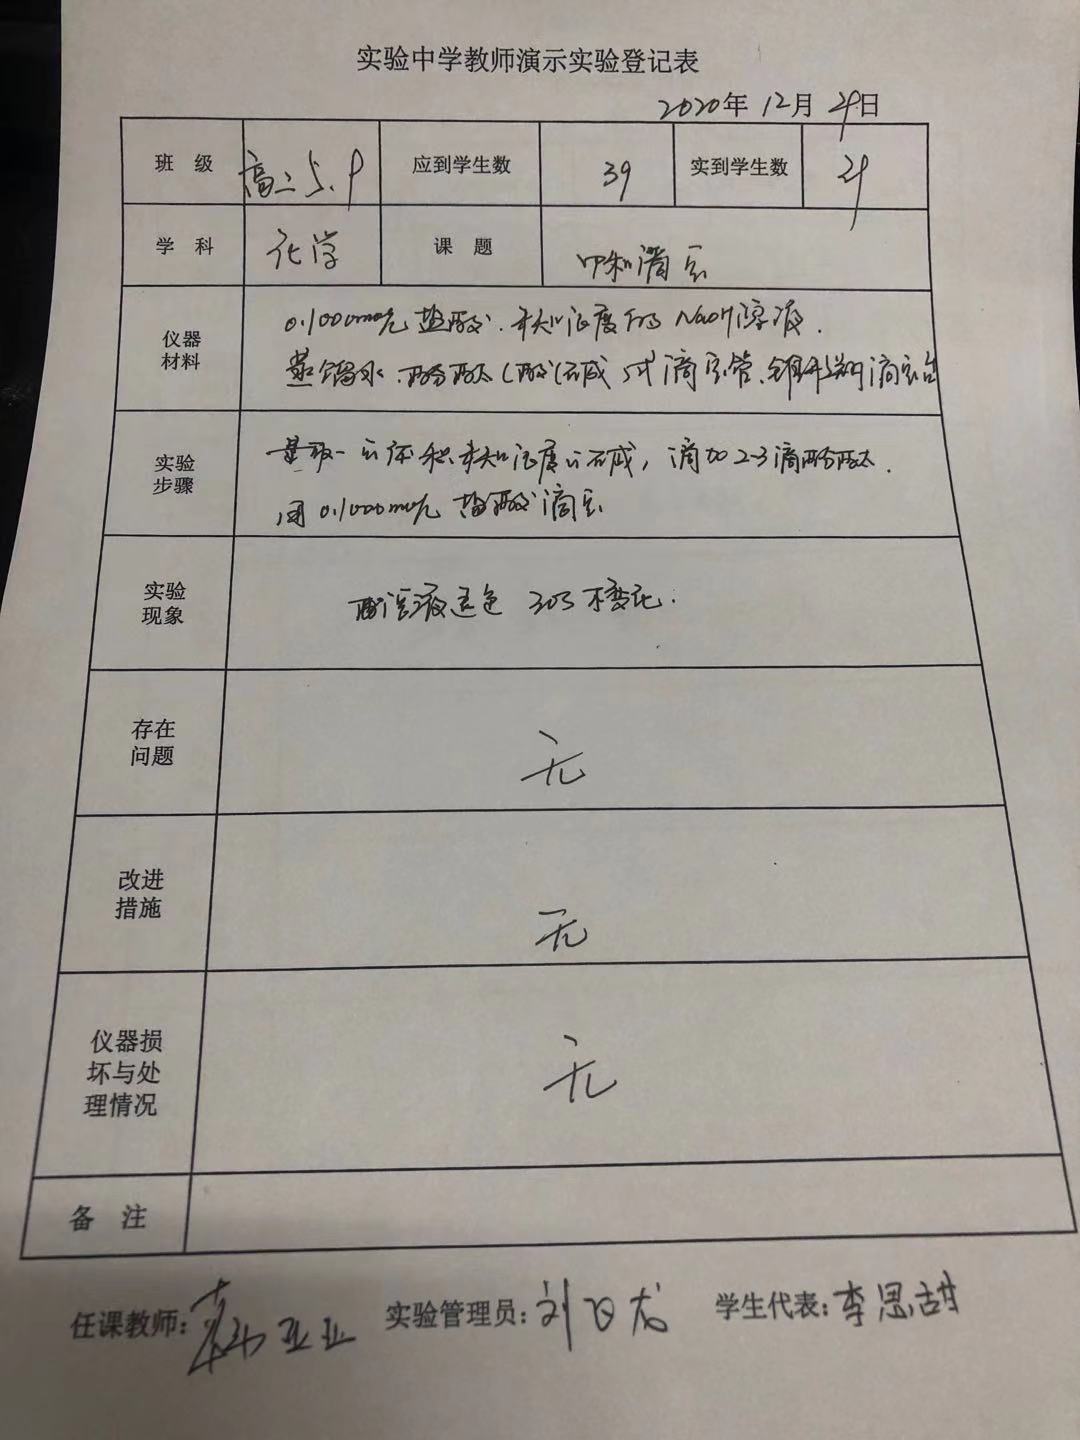 实验中学教师演示实验登记表
2020年 12月 29日
班 级 高二5.9 应到学生数 39 实到学生数 29
学 科 化学 课 题 中和滴定
仪器材料 0.1000mol/L 盐酸. 未知浓度的 NaOH溶液.
蒸馏水. 酚酞 (酸)(碱)式滴定管. 锥形瓶 滴定台
实验步骤 量取一定体积未知浓度的碱, 滴加2-3滴酚酞.
用0.1000mol/L 盐酸滴定
实验现象 溶液退色 30S不变化.
存在问题 无
改进措施 无
仪器损坏与处理情况 无
备 注
任课教师: 亚亚 实验管理员: 刘日龙 学生代表: 李思甜